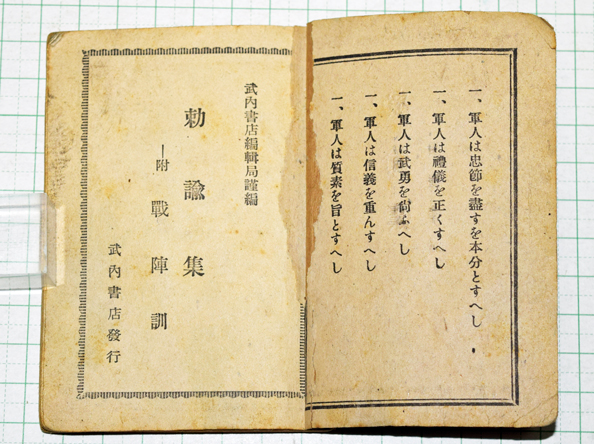 一、軍人は忠節を盡すを本分とすへし
一、軍人は禮儀を正くすへし
一、軍人は武勇を尙ふへし
一、軍人は信義を重んすへし
一、軍人は質素を旨とすへし
武內書店編輯局謹編
勅諭集
―附 戰陣訓
武內書店發行